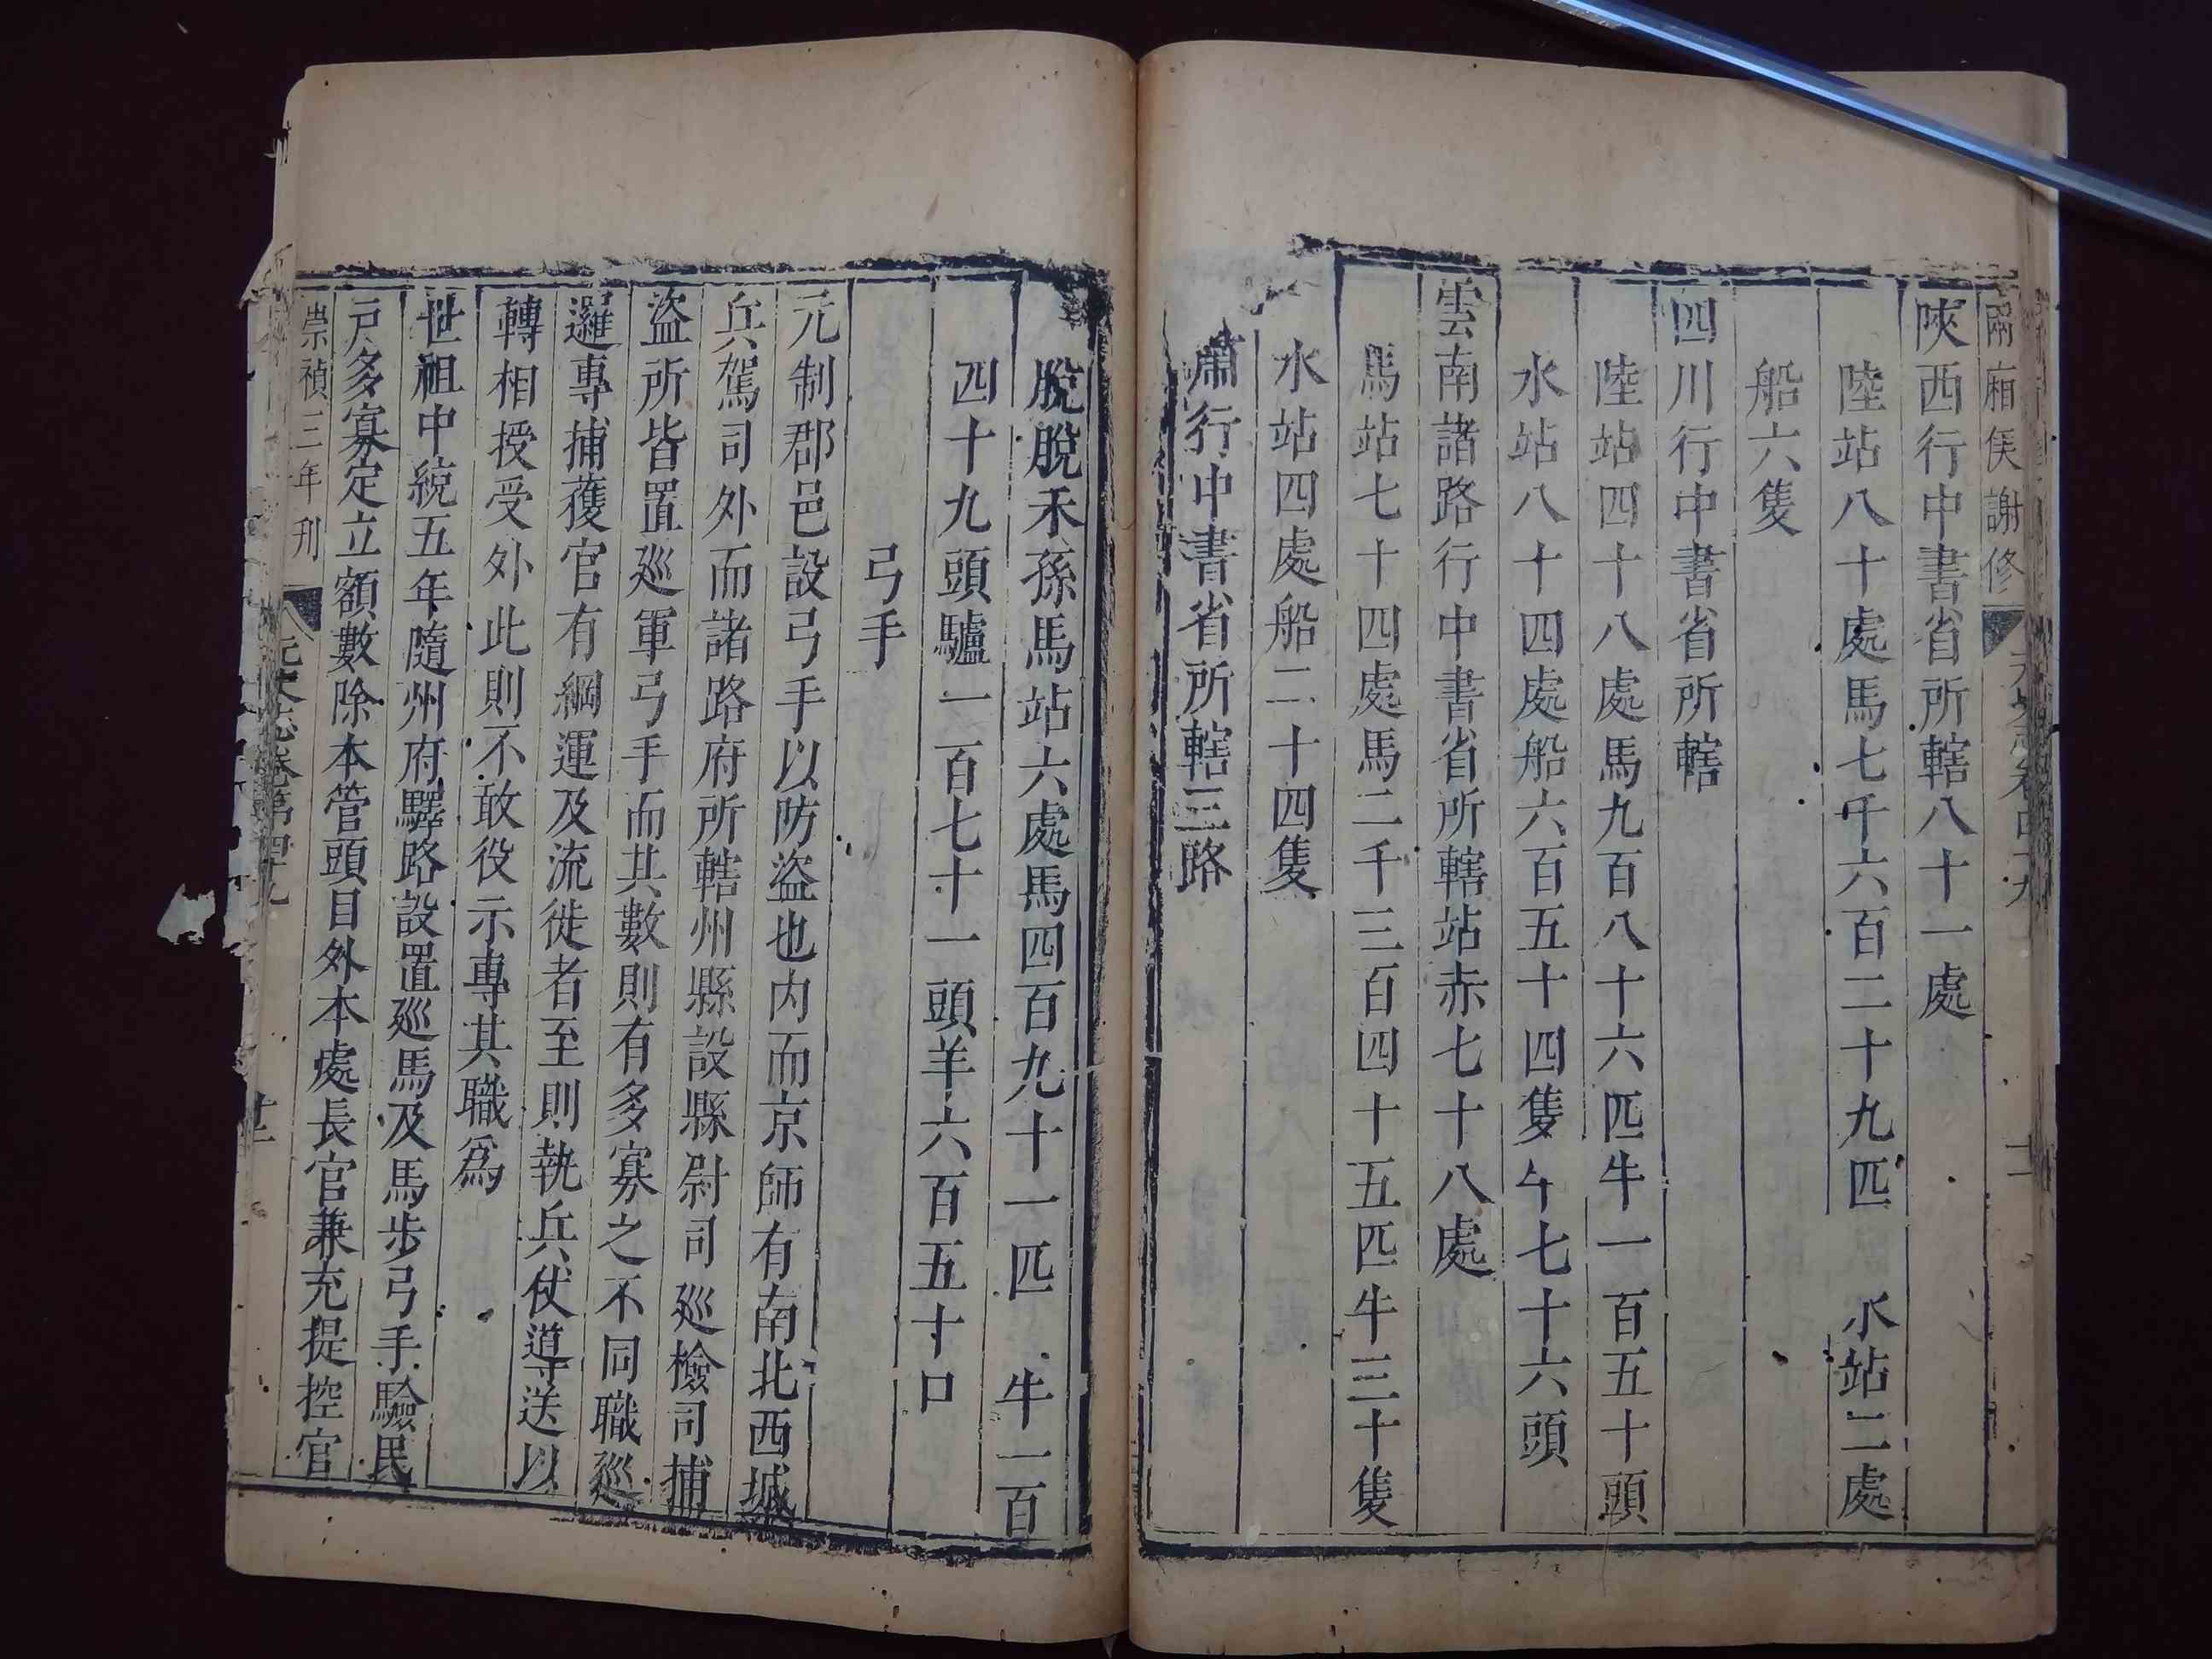 兩廂俟謝修
陜西行中書省所轄八十一處
陸站八十處馬七千六百二十九匹 水站二處
船六隻
四川行中書省所轄
陸站四十八處馬九百八十六匹牛一百五十頭
水站八十四處船六百五十四隻牛七十六頭
雲南諸路行中書省所轄站赤七十八處
馬站七十四處馬二千三百四十五匹牛三十隻
水站四處船二十四隻
肅行中書省所轄三路
脫脫禾孫馬站六處馬四百九十一匹 牛一百
四十九頭驢一百七十一頭羊六百五十口
弓手
元制郡邑設弓手以防盜也内而京師有南北西城
兵駕司外而諸路府所轄州縣設縣尉司廵檢司捕
盜所皆置廵軍弓手而其數則有多寡之不同職廵
邏專捕蒦官有綱運及流徙者至則執兵仗導送以
轉相授受外此則不敢役示專其職爲
世祖中統五年隨州府驛路設置廵馬及馬步弓手驗民
戸多寡定立額數除本管頭目外本處長官兼充提控官
崇禎三年刋
元史志卷第四十九